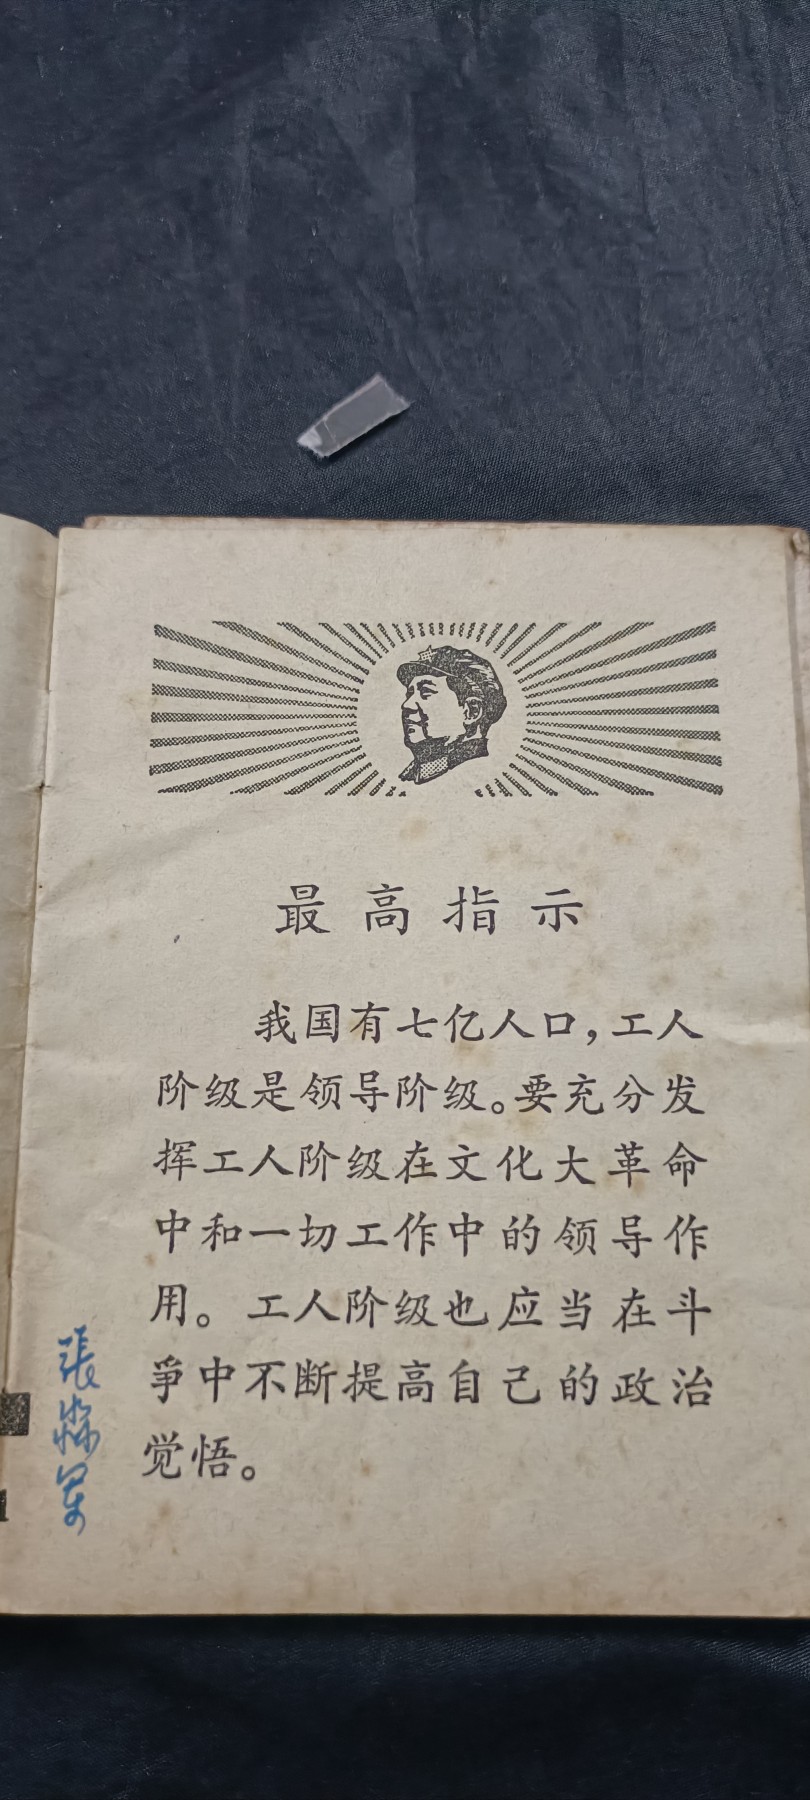 最高指示
我国有七亿人口，工人
阶级是领导阶级。要充分发
挥工人阶级在文化大革命
中和一切工作中的领导作
用。工人阶级也应当在斗
争中不断提高自己的政治
觉悟。
張